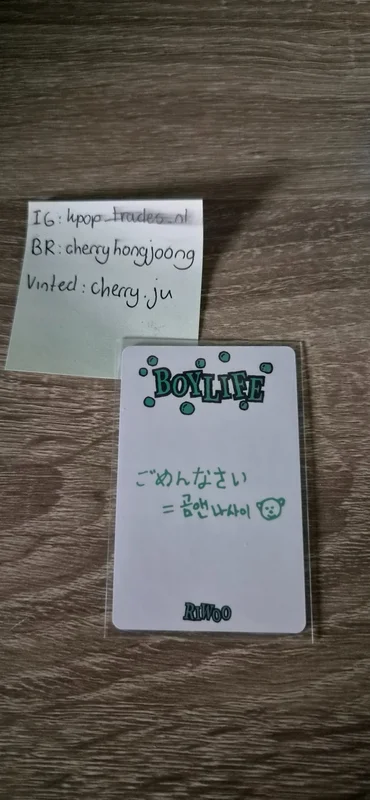 IG: kpop_trades.nl
BR: cherryhongjoong
Vinted: cherry.ju
BOYLIFE
ごめんなさい
= 곰앤나사이
RIWOO